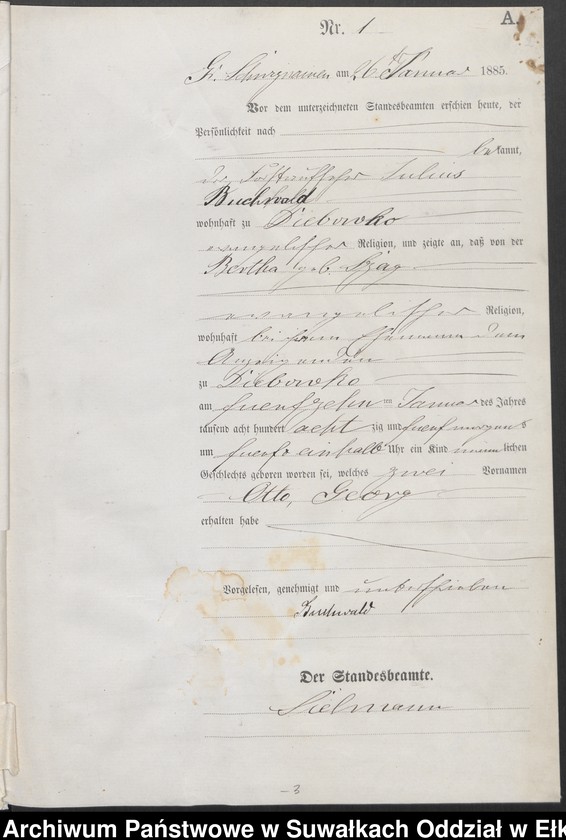 A.
Nr. 1
Gr. am 26 Januar 1885.
Vor dem unterzeichneten Standesbeamten erschien heute, der
Persönlichkeit nach
bekannt,
der Forstaufseher Julius
Buchwald
wohnhaft zu Diebowko
evangelischer Religion, und zeigte an, daß von der
Bertha geb.
evangelischer Religion,
wohnhaft bei ihrem Ehemann dem
Anzeigenden
zu Diebowko
am fuenfzehn ten Januar des Jahres
tausend acht hundert acht zig und fuenf morgens
um fuenf einhalb Uhr ein Kind maennlichen
Geschlechts geboren worden sei, welches zwei Vornamen
Otto, Georg
erhalten habe
Vorgelesen, genehmigt und unterschrieben
Buchwald
Der Standesbeamte.
Sielmann
– 3
Archiwum Państwowe w Suwałkach Oddział w Ełk